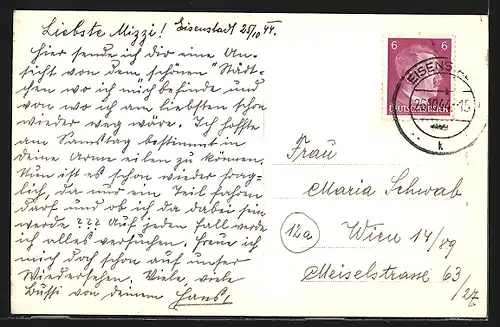 Liebste Mizzi! Eisenstadt 25/10 44.
Hier sende ich dir eine An-
sicht von dem „schönen" Städt-
chen wo ich mich befinde und
von wo ich am liebsten schon
wieder weg wäre. Ich hoffte
am Samstag bestimmt in
deine Arme eilen zu können.
Nun ist es schon wieder frag-
lich, da nur ein Teil fahren
darf und ob ich da dabei sein
werde ??? Auf jeden Fall werde
ich alles versuchen. Freue ich
mich doch schon auf unser
Wiedersehen. Viele, viele
Bussi von deinem Hans.
6 6
DEUTSCHES REICH
EISENST
10.44-15
k
Frau
Maria Schwab
12a
Wien 14/89
Meiselstrasse 63/27